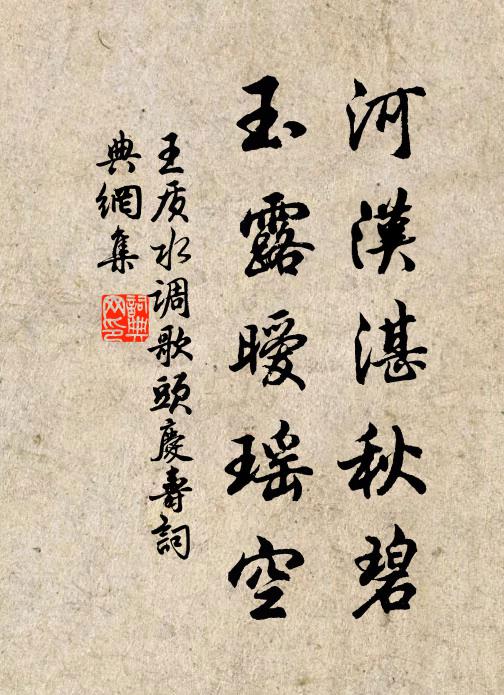 河漢湛秋碧
玉露曖瑤空
王质水调歌頭慶壽詞
典網集
詞典网印